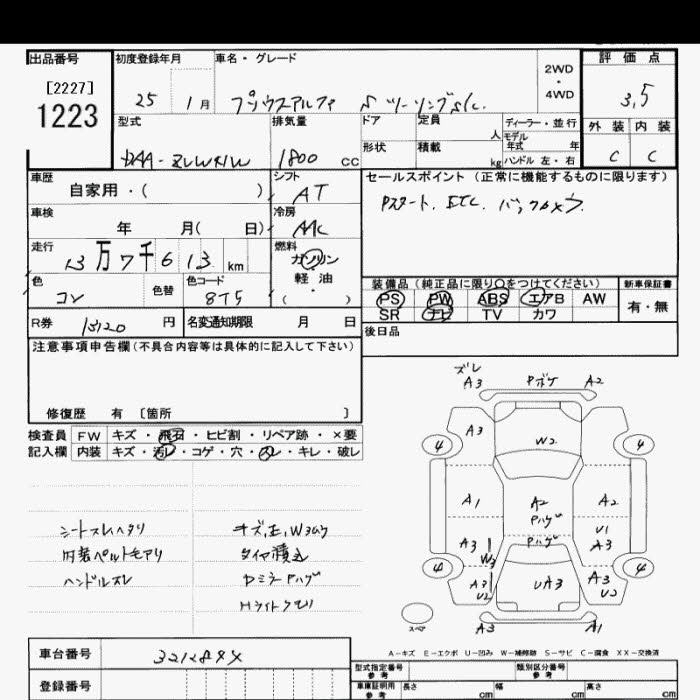 出品番号 初度登録年月 車名・グレード 2WD・4WD 評価点
[2227]
1223
25 1月 プリウスアルファ Sツーリングslc. 3,5
型式 排気量 ドア 定員 人 ディーラー・並行 外装 内装
モデル年式 年
DAA-ZVW41W 1800 cc 形状 積載 kg ハンドル 左・右 C C
車歴 シフト セールスポイント (正常に機能するものに限ります)
自家用・( ) AT Pスタート. ETC. バックカメラ.
車検 冷房
年 月( 日) AAC
走行 燃料
13万7千613km ガソリン
軽油
( )
色 色替 色コード
コン 8T5
装備品 (純正品に限り○をつけてください) 新車保証書
PS PW ABS エアB AW 有・無
SR ナビ TV カワ
R券 13120円 名変通知期限 月 日
後日品
注意事項申告欄(不具合内容等は具体的に記入して下さい)
修復歴 有 [箇所 ]
検査員 FW キズ・飛石・ヒビ割・リペア跡・×要
記入欄 内装 キズ・汚レ・コゲ・穴・スレ・キレ・破レ
シートスレヘタリ キズ,エ,W3ムラ
内装ベルトモアリ タイヤ積込
ハンドルスレ DミラーPハゲ
Hライトクモリ
ズレ
A3 Pボケ A2
A3
4 W2 4
A1 A2 A2
Pハゲ U1
A3 Pハゲ A3
W3
4 4
A3 UA3 A3
U2 U2
スペア A3 A1
A-キズ E-エクボ U-凹み W-補修跡 S-サビ C-腐食 XX-交換済
車台番号 321284XX
型式指定番号 参考 類別区分番号 参考
登録番号
車庫証明用 参考 長さ cm 幅 cm 高さ cm